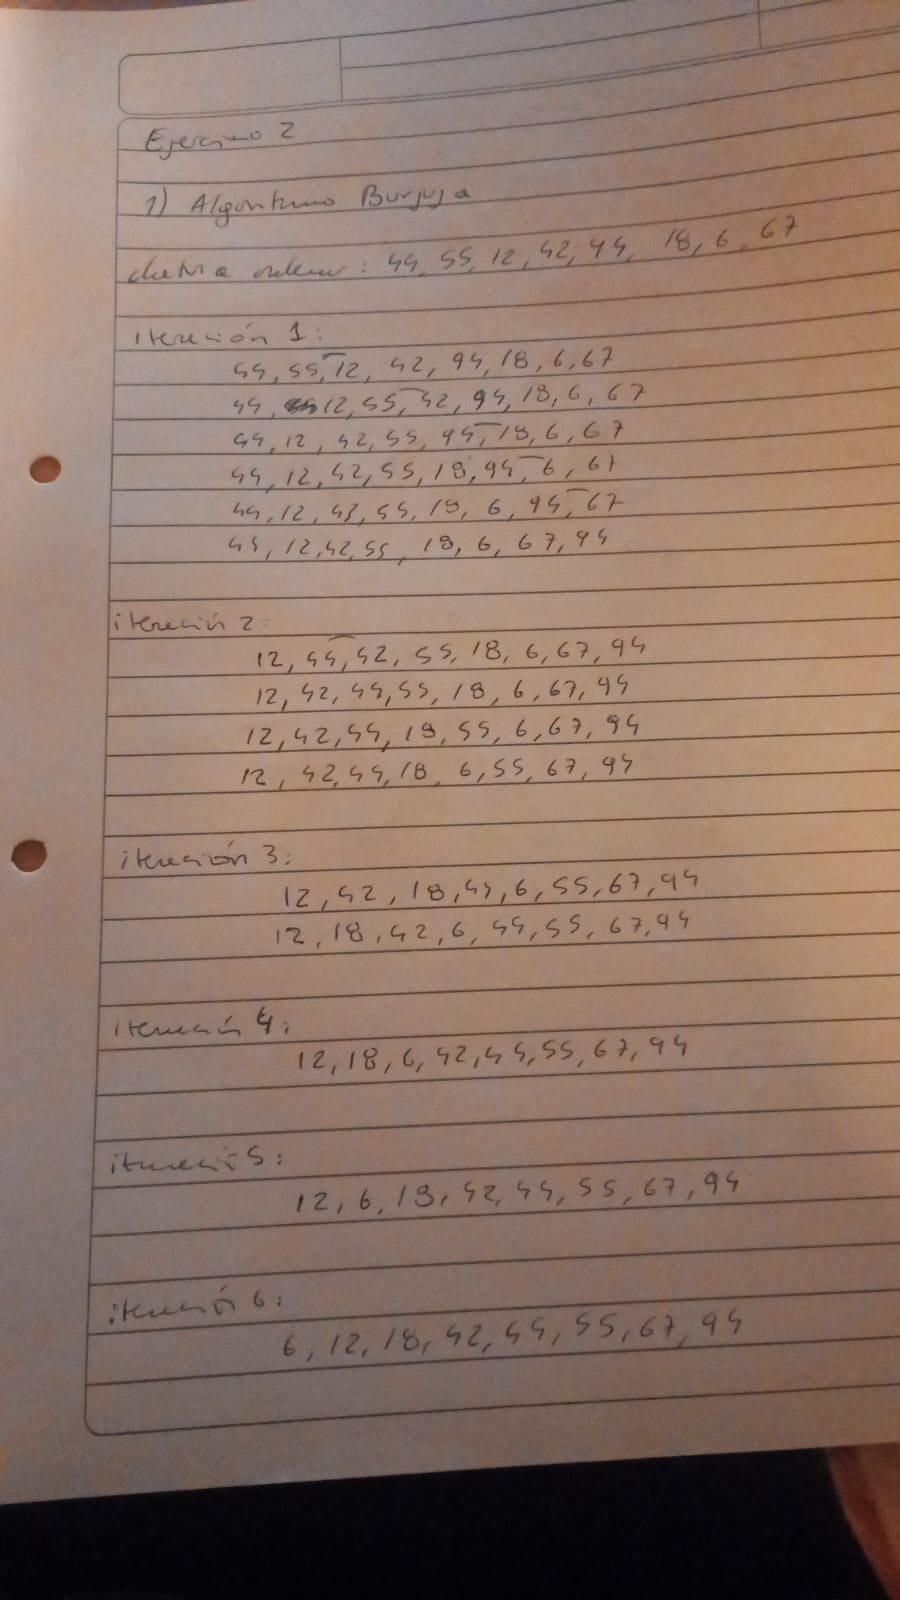 Ejercicio 2
1) Algoritmo Burjuja
datos a ordenar: 44, 55, 12, 42, 94, 18, 6, 67
iteración 1:
44, 55, 12, 42, 94, 18, 6, 67
44, 12, 55, 42, 94, 18, 6, 67
44, 12, 42, 55, 94, 18, 6, 67
44, 12, 42, 55, 18, 94, 6, 67
44, 12, 42, 55, 18, 6, 94, 67
44, 12, 42, 55, 18, 6, 67, 94
iteración 2:
12, 44, 42, 55, 18, 6, 67, 94
12, 42, 44, 55, 18, 6, 67, 94
12, 42, 44, 18, 55, 6, 67, 94
12, 42, 44, 18, 6, 55, 67, 94
iteración 3:
12, 42, 18, 44, 6, 55, 67, 94
12, 18, 42, 6, 44, 55, 67, 94
iteración 4:
12, 18, 6, 42, 44, 55, 67, 94
iteración 5:
12, 6, 18, 42, 44, 55, 67, 94
iteración 6:
6, 12, 18, 42, 44, 55, 67, 94